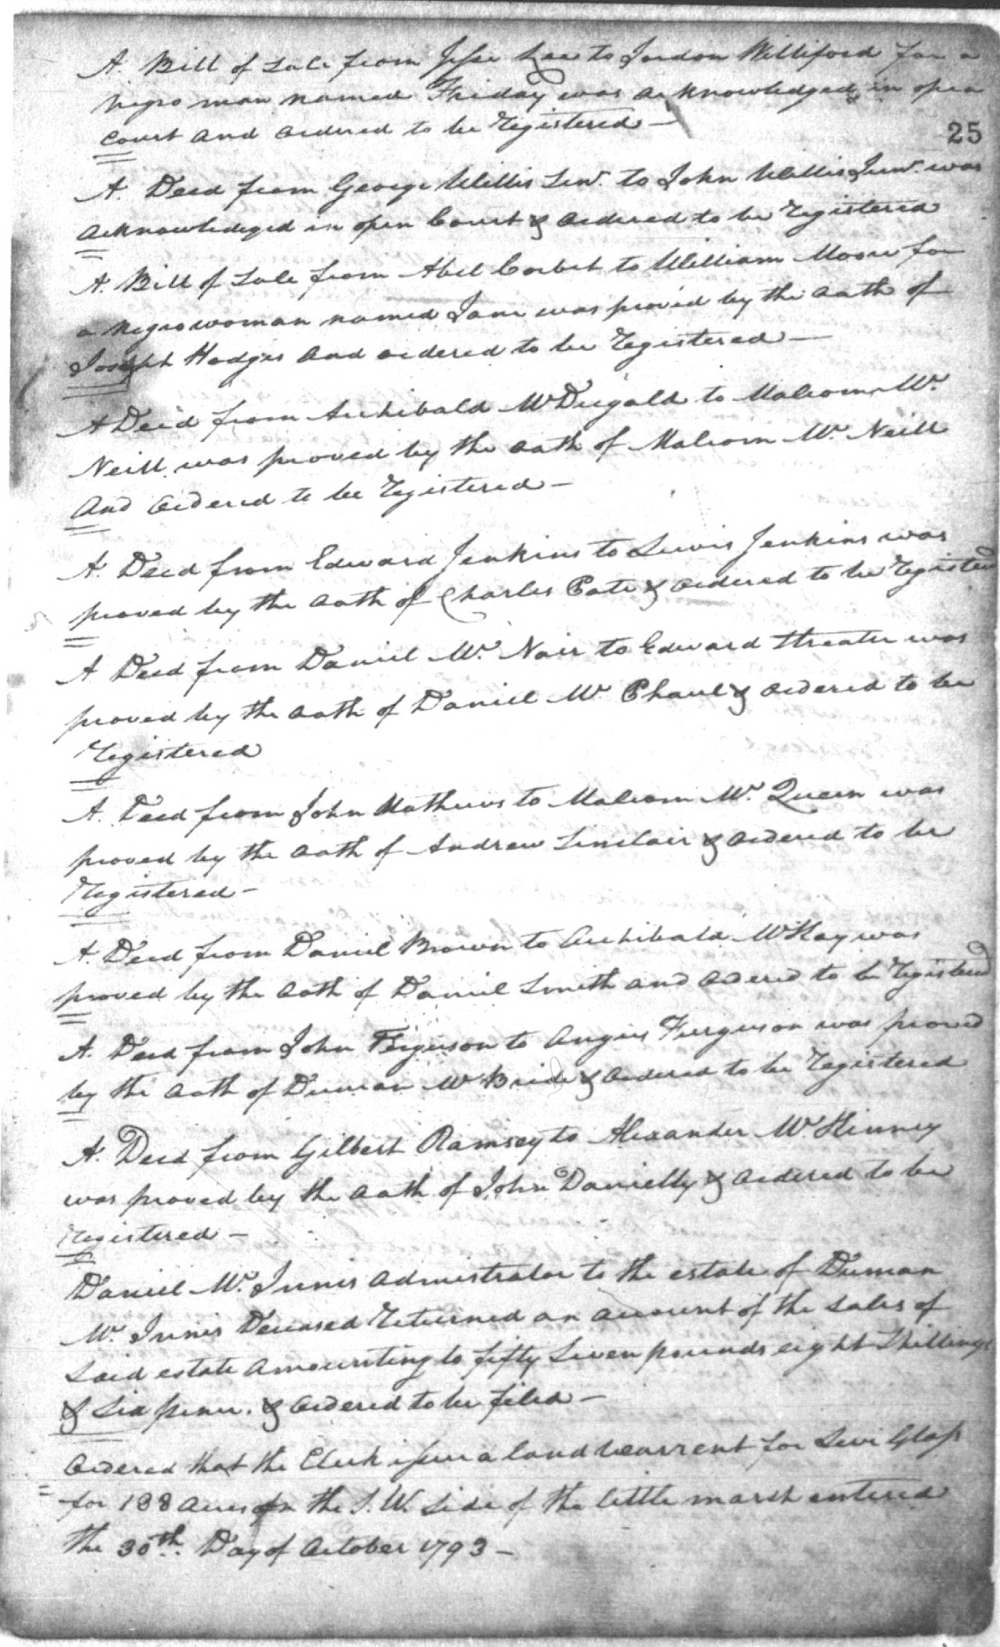 A Bill of Sale from Jesse Lee to Jordon Williford for a
Negro man named Friday was acknowledged in open
Court and ordered to be Registered —
25
A. Deed from George Willis Senr. to John Willis Junr. was
acknowledged in open Court & ordered to be Registered
A. Bill of Sale from Abel Corbet to William Moore for
a Negro woman named Jane was proved by the oath of
Joseph Hodges and ordered to be Registered —
A Deed from Archibald McDugald to Malcom Mc.
Neill was proved by the oath of Malcom Mc. Neill
And ordered to be Registered —
A. Deed from Edward Jenkins to Lewis Jenkins was
proved by the oath of Charles Pate & ordered to be Registered
A Deed from Daniel Mc. Nair to Edward Threater was
proved by the oath of Daniel Mc Phaul & ordered to be
Registered
A. Deed from John Mathews to Malcom Mc. Queen was
proved by the oath of Andrew Sinclair & ordered to be
Registered —
A. Deed from Daniel Brown to Archibald McKay was
proved by the oath of Daniel Smith and ordered to be Registered
A. Deed from John Ferguson to Angus Furguson was proved
by the oath of Duncan Mc Bride & ordered to be Registered
A. Deed from Gilbert Ramsey to Alexander Mc. Kinney
was proved by the oath of John Danielly & ordered to be
Registered —
Daniel Mc. Innis Admistrator to the estate of Duncan
Mc. Innis Deceased Returned an account of the Sales of
Said estate amounting to fifty Seven pounds eight Shillings
& Six pence. & ordered to be filed —
Ordered that the Clerk issue a land warrent for Levi Glass
for 188 acres on the S. W. Side of the little marsh entered
the 30th. Day of October 1793 —